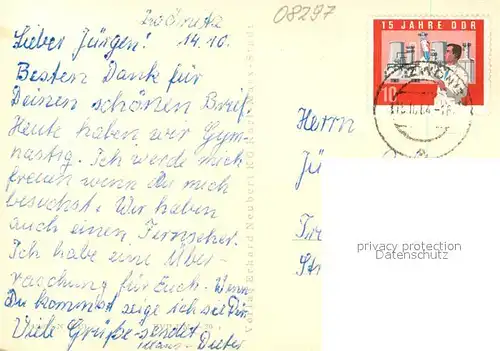 Zwönitz
08297
Lieber Jürgen! 14.10.
Besten Dank für
Deinen schönen Brief.
Heute haben wir Gym-
nastig. Ich werde mich
freuen wenn Du mich
besuchst. Wir haben
auch einen Fernseher.
Ich habe eine Über-
raschung für Euch. Wenn
Du kommst zeige ich sie Dir.
Viele Grüße sendet
Dieter
Verlag Erhard Neubert
15 JAHRE DDR
10
Herrn
Jü
Str
privacy protection
Datenschutz